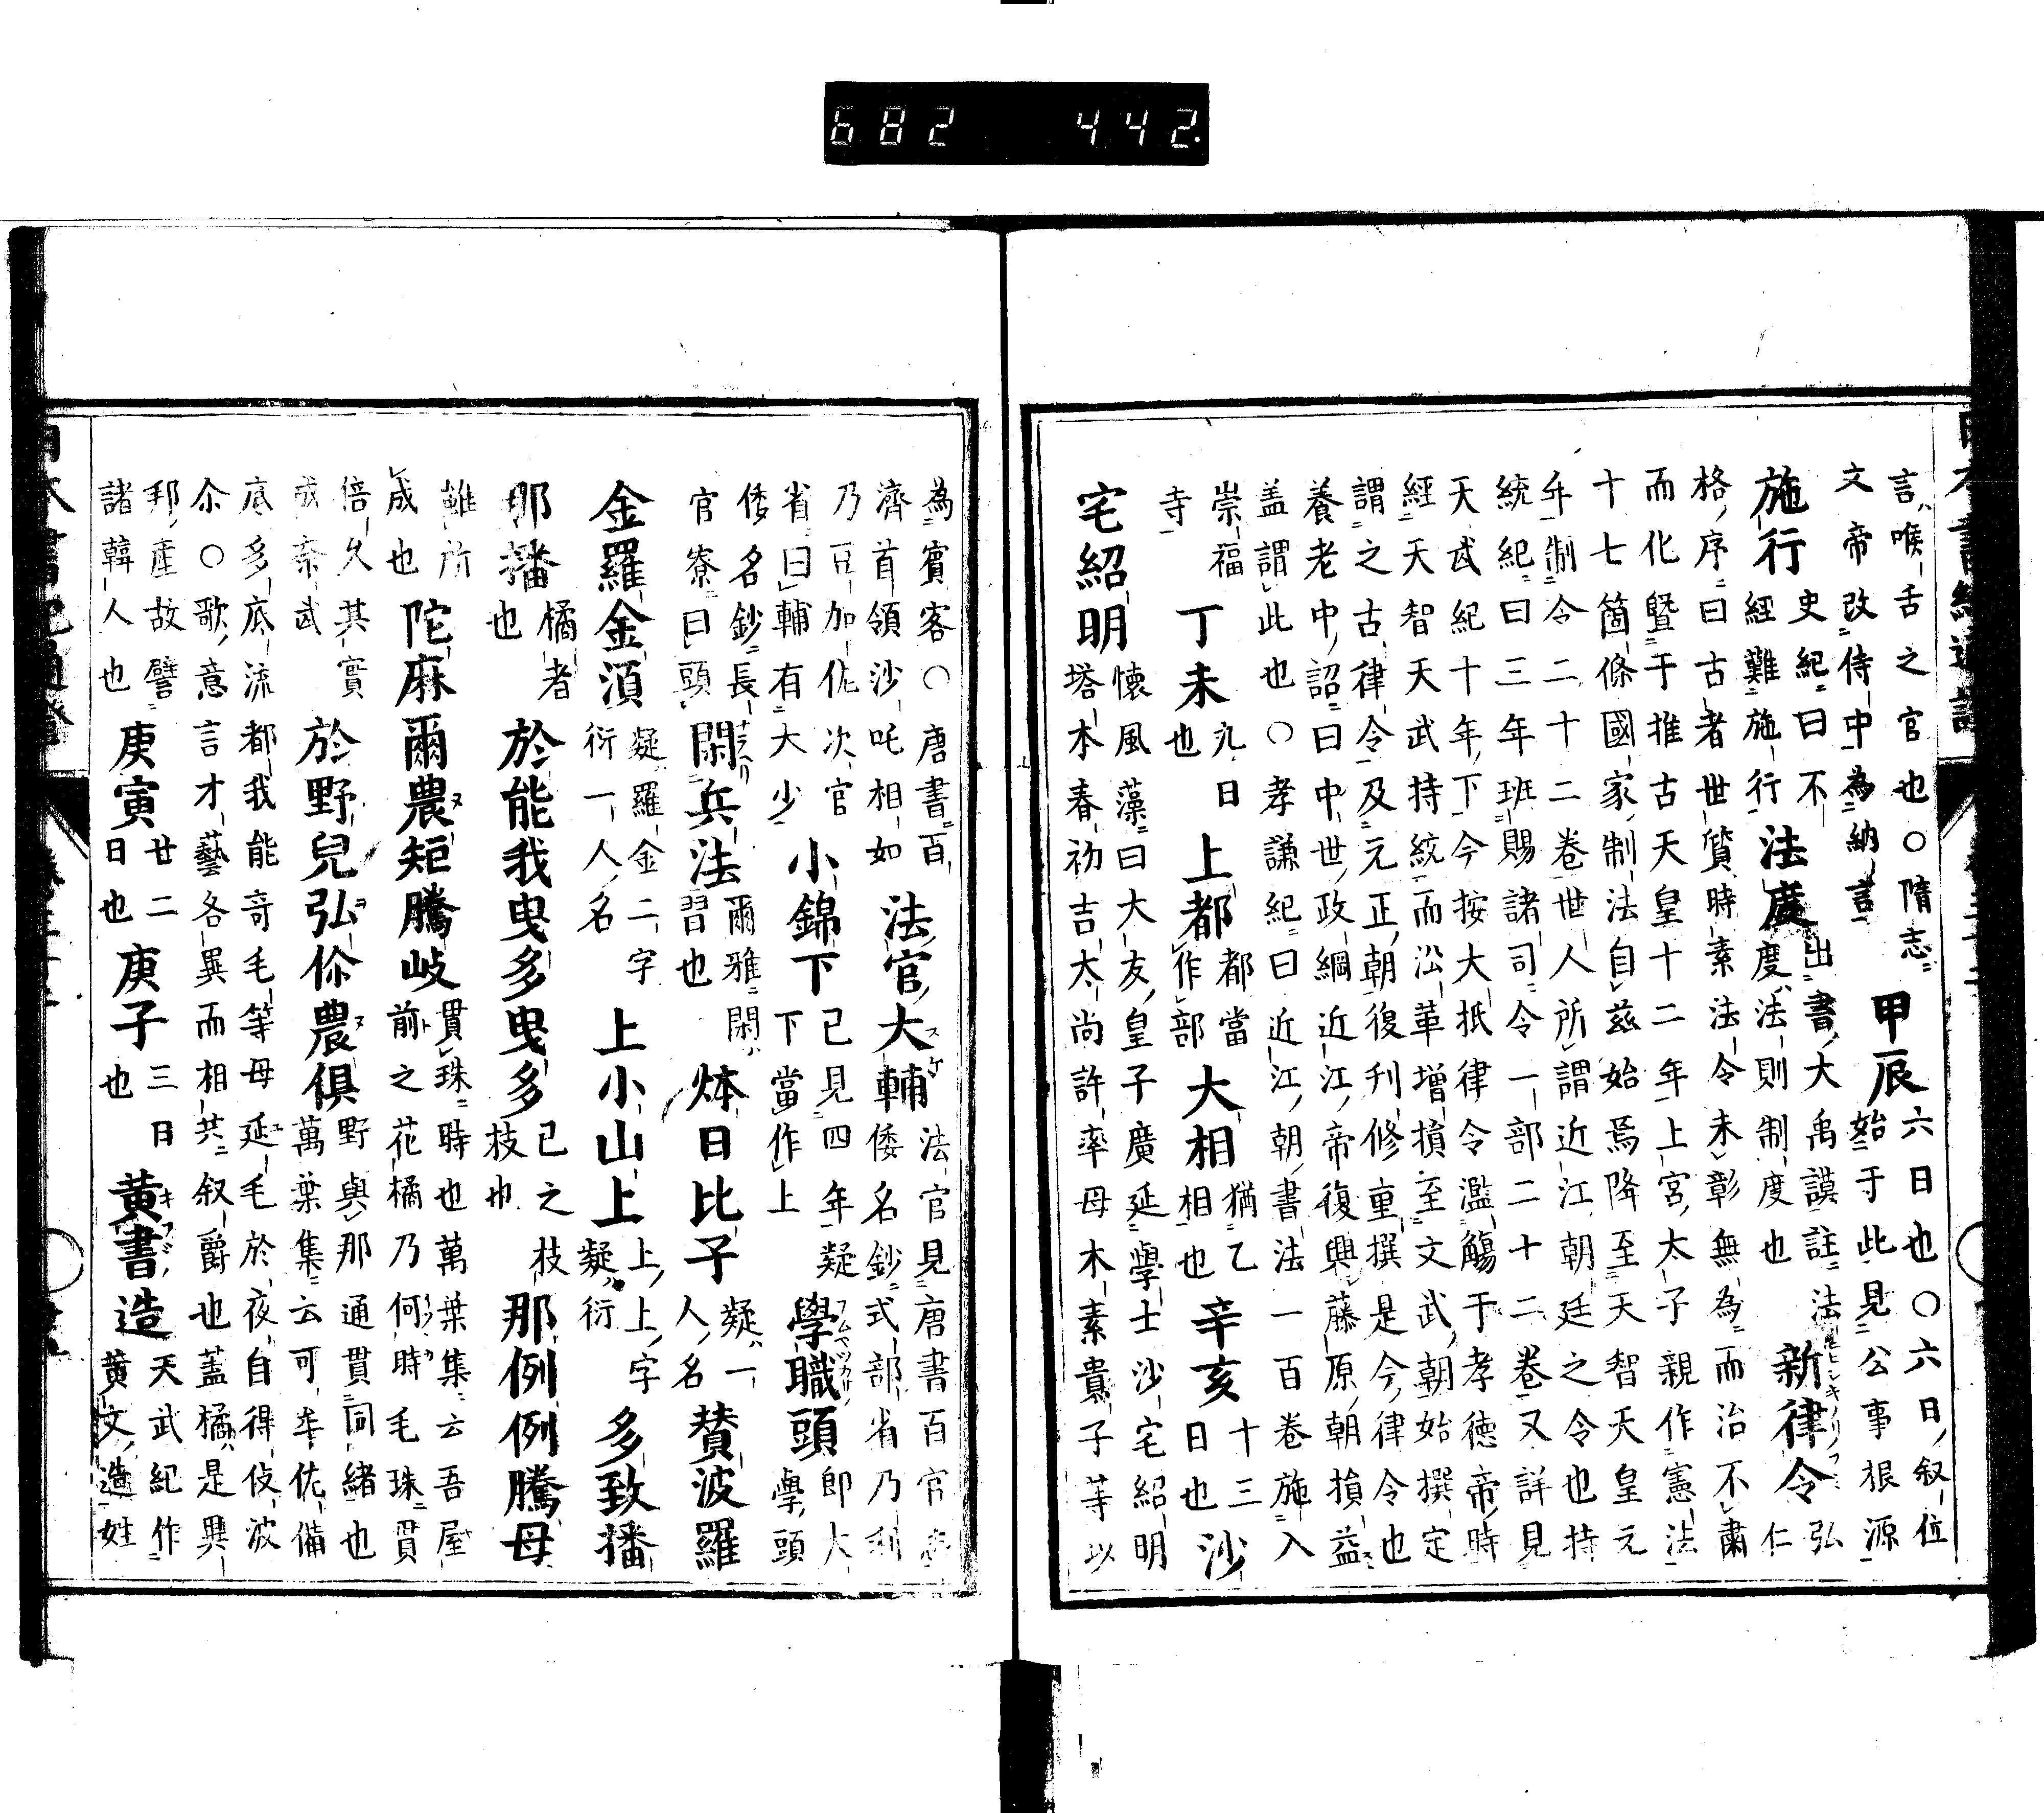 言喉舌之官也○隋志
文帝改侍中為納言
甲辰
六日也○六日叙位
始于此見公事根源
施行
史紀曰不
經難施行
法度
出書大禹謨註法
度法則制度也
新律令
弘
仁
格序曰古者世質時素法令未彰無為而治不肅
而化曁于推古天皇十二年上宮太子親作憲法
十七箇條國家制法自茲始焉降至天智天皇元
年制令二十二卷世人所謂近江朝廷之令也持
統紀曰三年班賜諸司令一部二十二卷又詳見
天武紀十年下今按大抵律令濫觴于孝德帝時
經天智天武持統而沿革增損至文武朝始撰定
謂之古律令及元正朝復刋修重撰是今律令也
養老中詔曰中世政綱近江帝復興藤原朝損益
盖謂此也○孝謙紀曰近江朝書法一百卷施入
崇福
寺
丁未
九日
也
上都
都當
作部
大相
猶乙
相也
辛亥
十三
日也
沙
宅紹明
懷風藻曰大友皇子廣延學士沙宅紹明
塔本春初吉太尚許率母木素貴子等以
為賓客○唐書百
濟首領沙吒相如
法官大輔
法官見唐書百官志
倭名鈔式部省乃利
乃豆加佐次官
省曰輔有大少
小錦下
已見四年疑
下當作上
學職頭
郎大
學頭
倭名鈔長
官寮曰頭
閑兵法
爾雅閑
習也
㶱日比子
疑一
人名
賛波羅
金羅金須
疑羅金二字
衍一人名
上小山上
上上字
疑衍
多致播
那播
橘者
也
於能我曳多曳多
已之枝
枝也
那例例騰母
雖所
成也
陀麻爾農矩騰岐
貫珠時也萬葉集云吾屋
前之花橘乃何時毛珠貫
倍久其實
成奈武
於野兒弘你農俱
野與那通貫同緒也
萬葉集云可牟佐備
底多底流都我能奇毛等母延毛於夜自得伎波
尒○歌意言才藝各異而相共叙爵也蓋橘是異
邦產故譬
諸韓人也
庚寅
廿二
日也
庚子
三日
也
黄書造
天武紀作
黄文造姓
682 442.